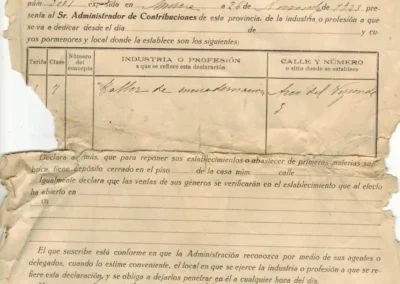 núm. 3001 expedida en a 26 de de 1923 pre-
senta al Sr. Administrador de Contribuciones de esta provincia, de la industria o profesión a que
se va a dedicar desde el día de de y cu-
yos pormenores y local donde la establece son los siguientes:
Tarifa Clase Número del concepto INDUSTRIA O PROFESIÓN a que se refiere esta declaración CALLE Y NÚMERO o sitio donde se establece
7 taller de del
Declara además, que para reponer sus establecimientos o abastecer de primeras materias su
tiene depósito cerrado en el piso de la casa núm. calle
Igualmente declara que las ventas de sus géneros se verificarán en el establecimiento que al efecto
ha abierto en
El que suscribe está conforme en que la Administración reconozca por medio de sus agentes o
delegados, cuando lo estime conveniente, el local en que se ejerce la industria o profesión a que se re-
fiere esta declaración, y se obliga a dejarlos penetrar en él a cualquier hora del día.